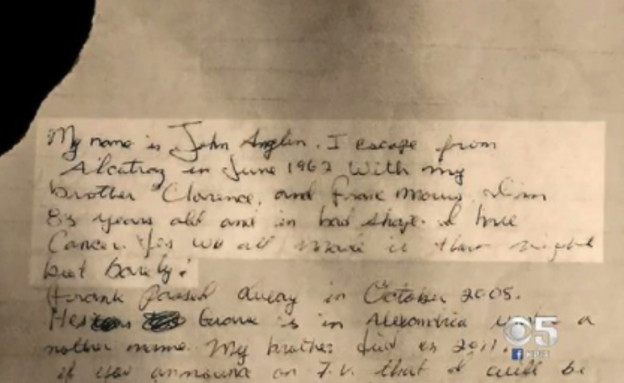 My name is John Anglin. I escape from
Alcatraz in June 1962 With my
brother Clarence, and Frank Morris. I'm
83 years old and in bad shape. I have
Cancer. Yes we all made it that night
but barely!
Frank Passed away in October 2005.
His Grave is in Alexandria under a
nother name. My brother died in 2011.
if you announce on T.V. that I will be
5